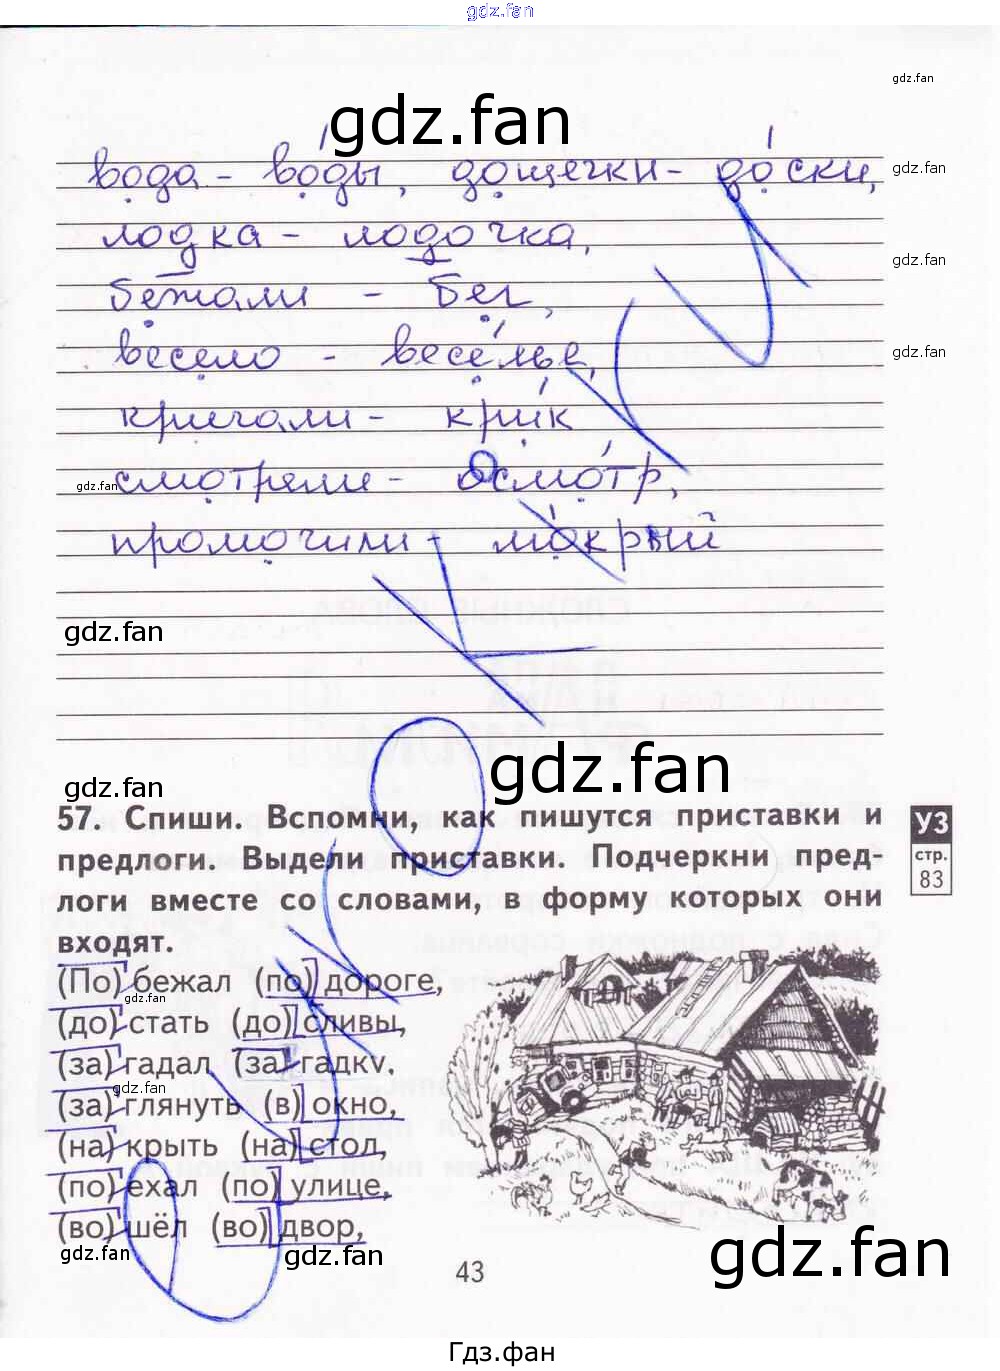 gdz.fan
gdz.fan
gdz.fan
вода - воды, дощечки - доски,
gdz.fan
лодка - лодочка,
gdz.fan
бежали - бег,
весело - веселье,
gdz.fan
кричали - крик
смотрели - осмотр,
gdz.fan
промочили - мокрый
gdz.fan
gdz.fan
gdz.fan
57. Спиши. Вспомни, как пишутся приставки и
предлоги. Выдели приставки. Подчеркни пред-
логи вместе со словами, в форму которых они
входят.
УЗ
стр.
83
(По) бежал (по) дороге,
gdz.fan
(до) стать (до) сливы,
(за) гадал (за) гадку,
gdz.fan
(за) глянуть (в) окно,
(на) крыть (на) стол,
(по) ехал (по) улице,
(во) шёл (во) двор,
gdz.fan
gdz.fan
gdz.fan
43
Гдз.фан